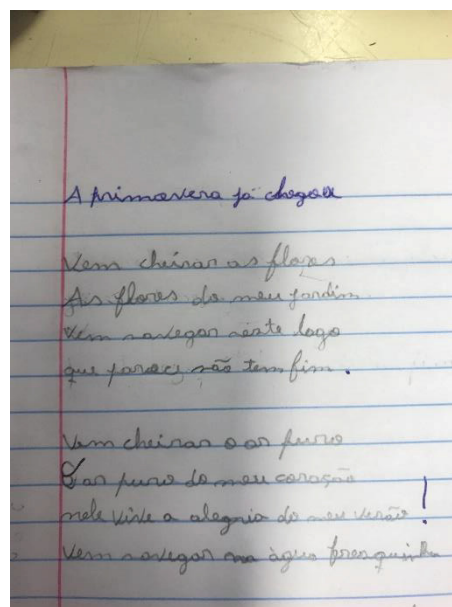 A primavera já chegou
Vem cheirar as flores
As flores do meu jardim
Vem navegar neste lago
que parece não tem fim.
Vem cheirar o ar puro
O ar puro do meu coração
nele vive a alegria do meu verão!
Vem navegar na água fresquinha